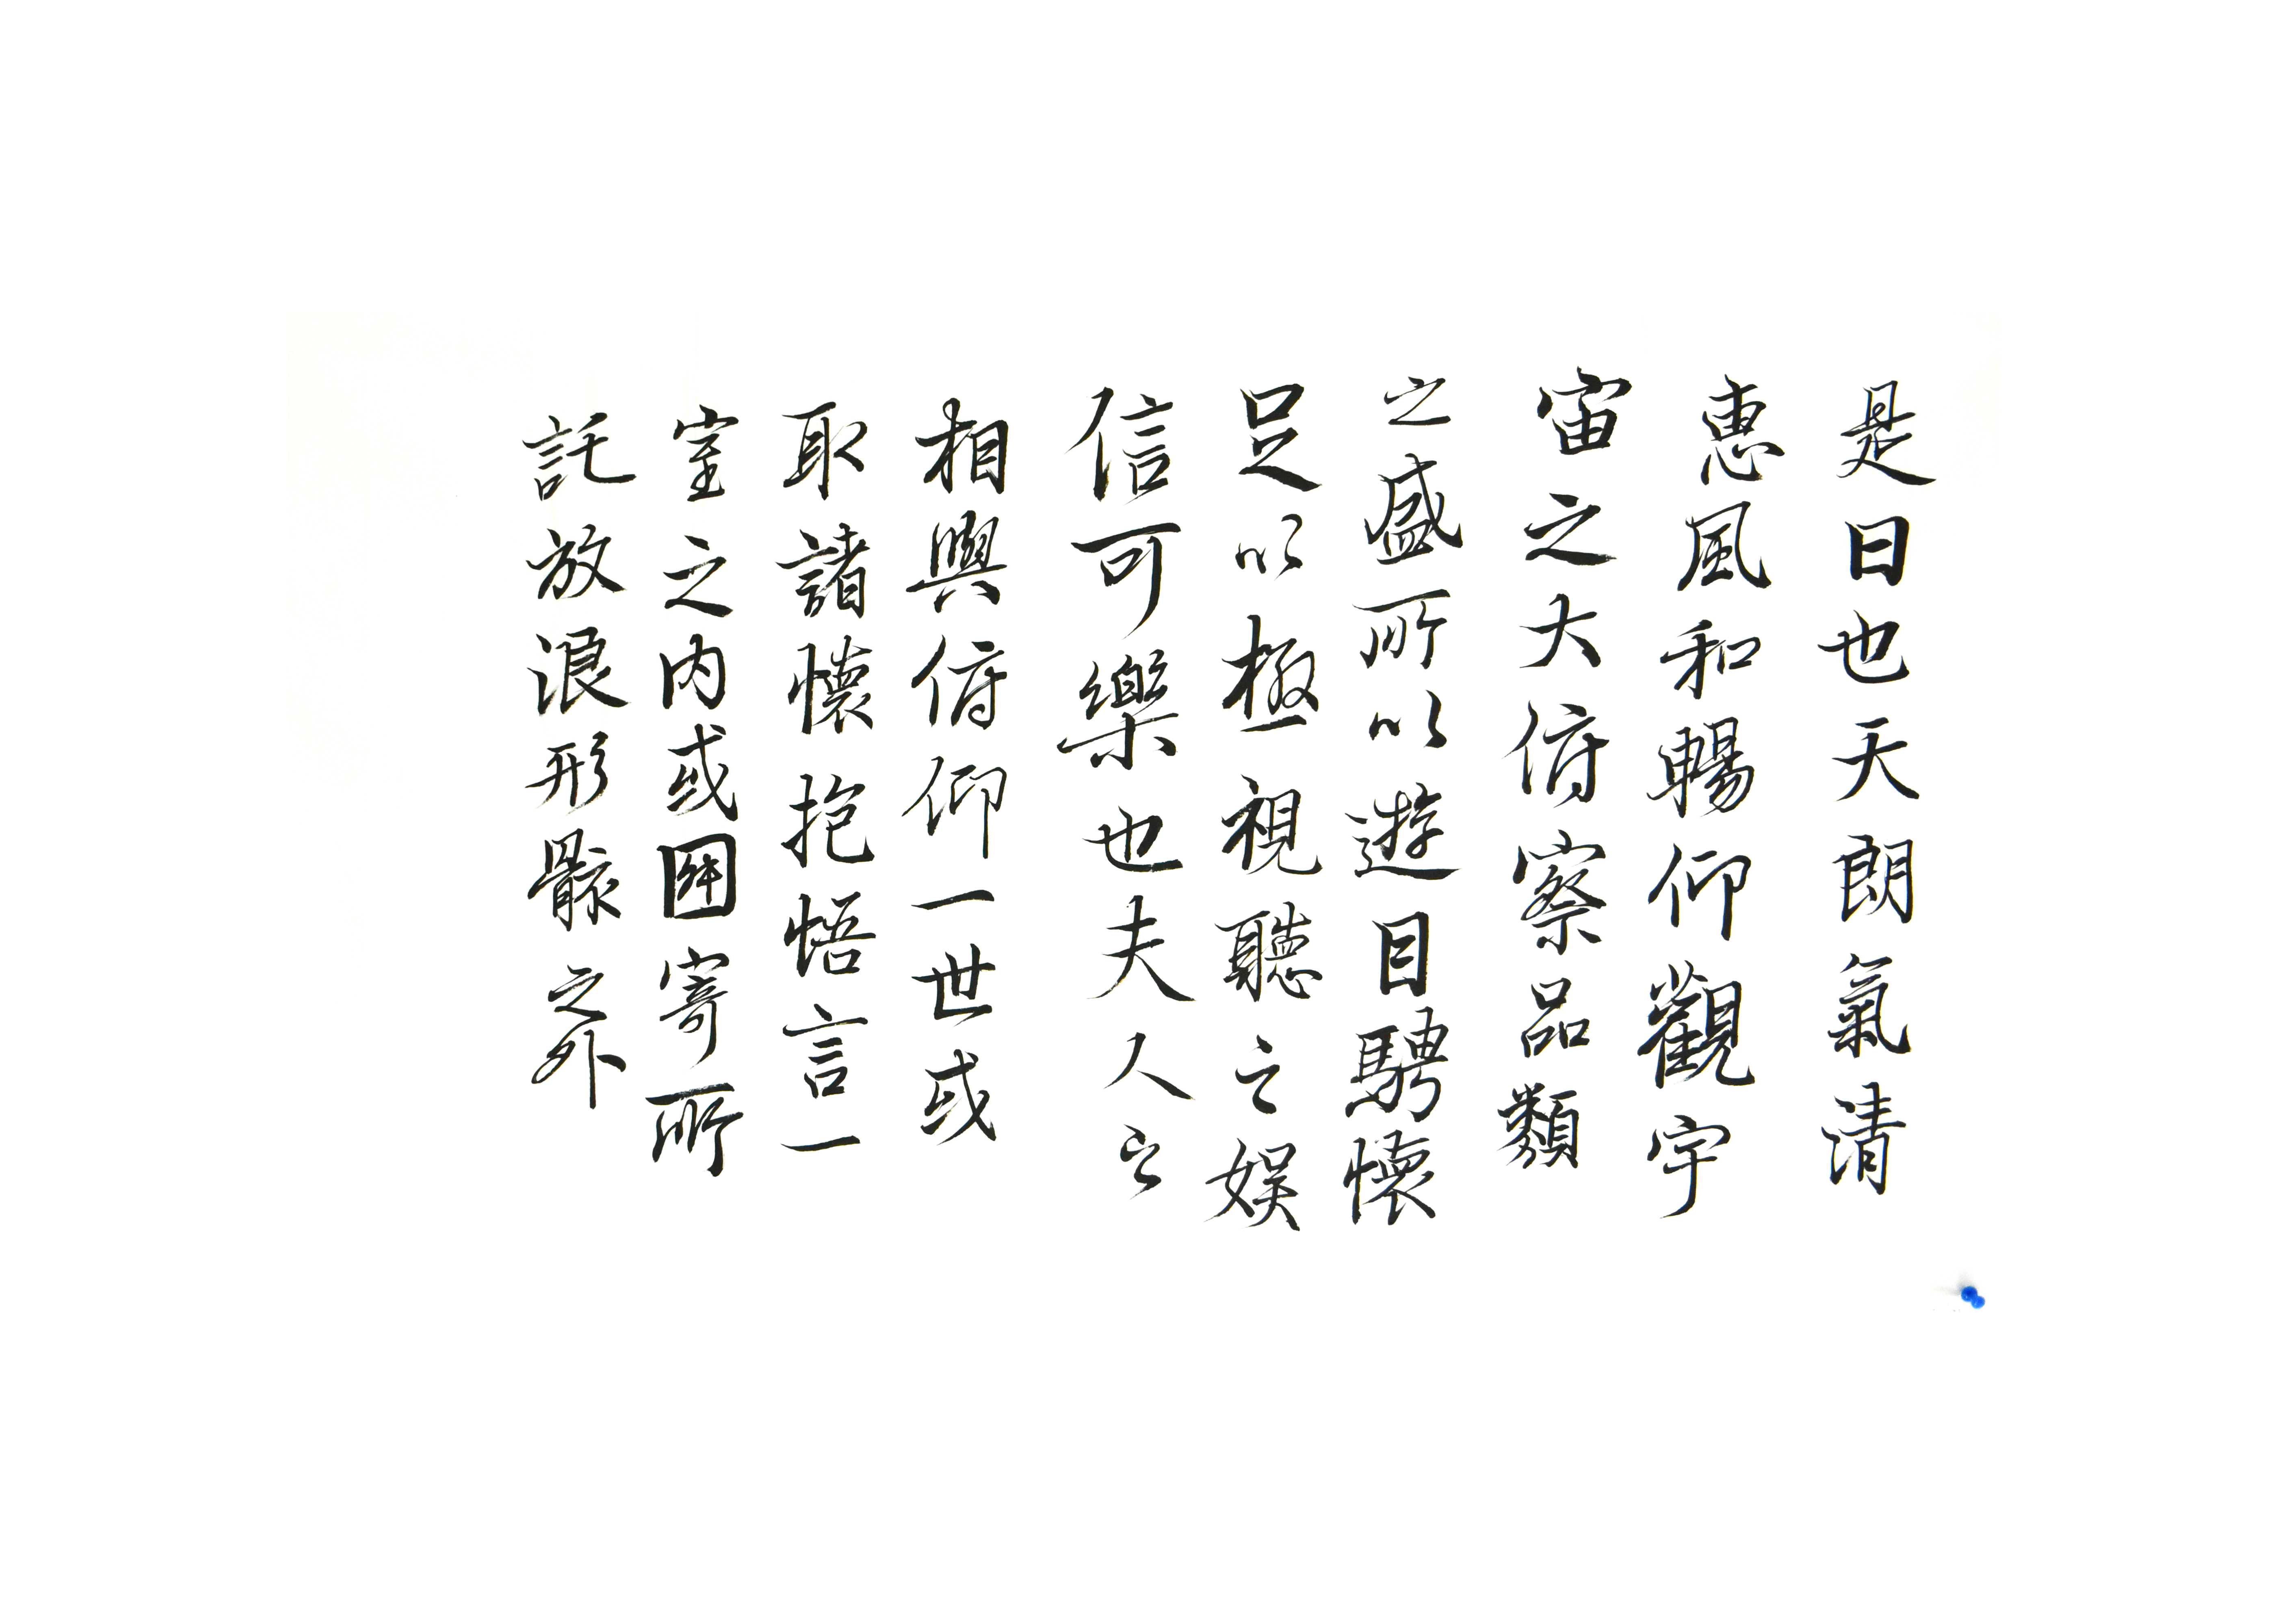 是日也天朗氣清
惠風和暢仰觀宇
宙之大俯察品類
之盛所以遊目騁懷
足以極視聽之娛
信可樂也夫人之
相與俯仰一世或
取諸懷抱悟言一
室之内或因寄所
託放浪形骸之外